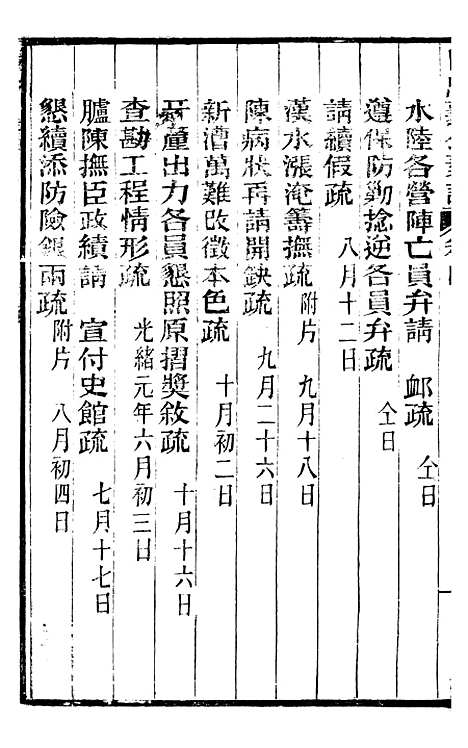 水陸各營陣亡員弁請 卹疏 仝日
遵保防勦捻逆各員弁疏 仝日
請續假疏 八月十二日
漢水漲淹籌撫疏 附片 九月十八日
陳病狀再請開缺疏 九月二十六日
新漕萬難改徵本色疏 十月初二日
瓮出力各員懇照原摺獎敘疏 十月十六日
查勘工程情形疏 光緒元年六月初三日
臚陳撫臣政績請 宣付史館疏 七月十七日
懇續添防險銀兩疏 附片 八月初四日